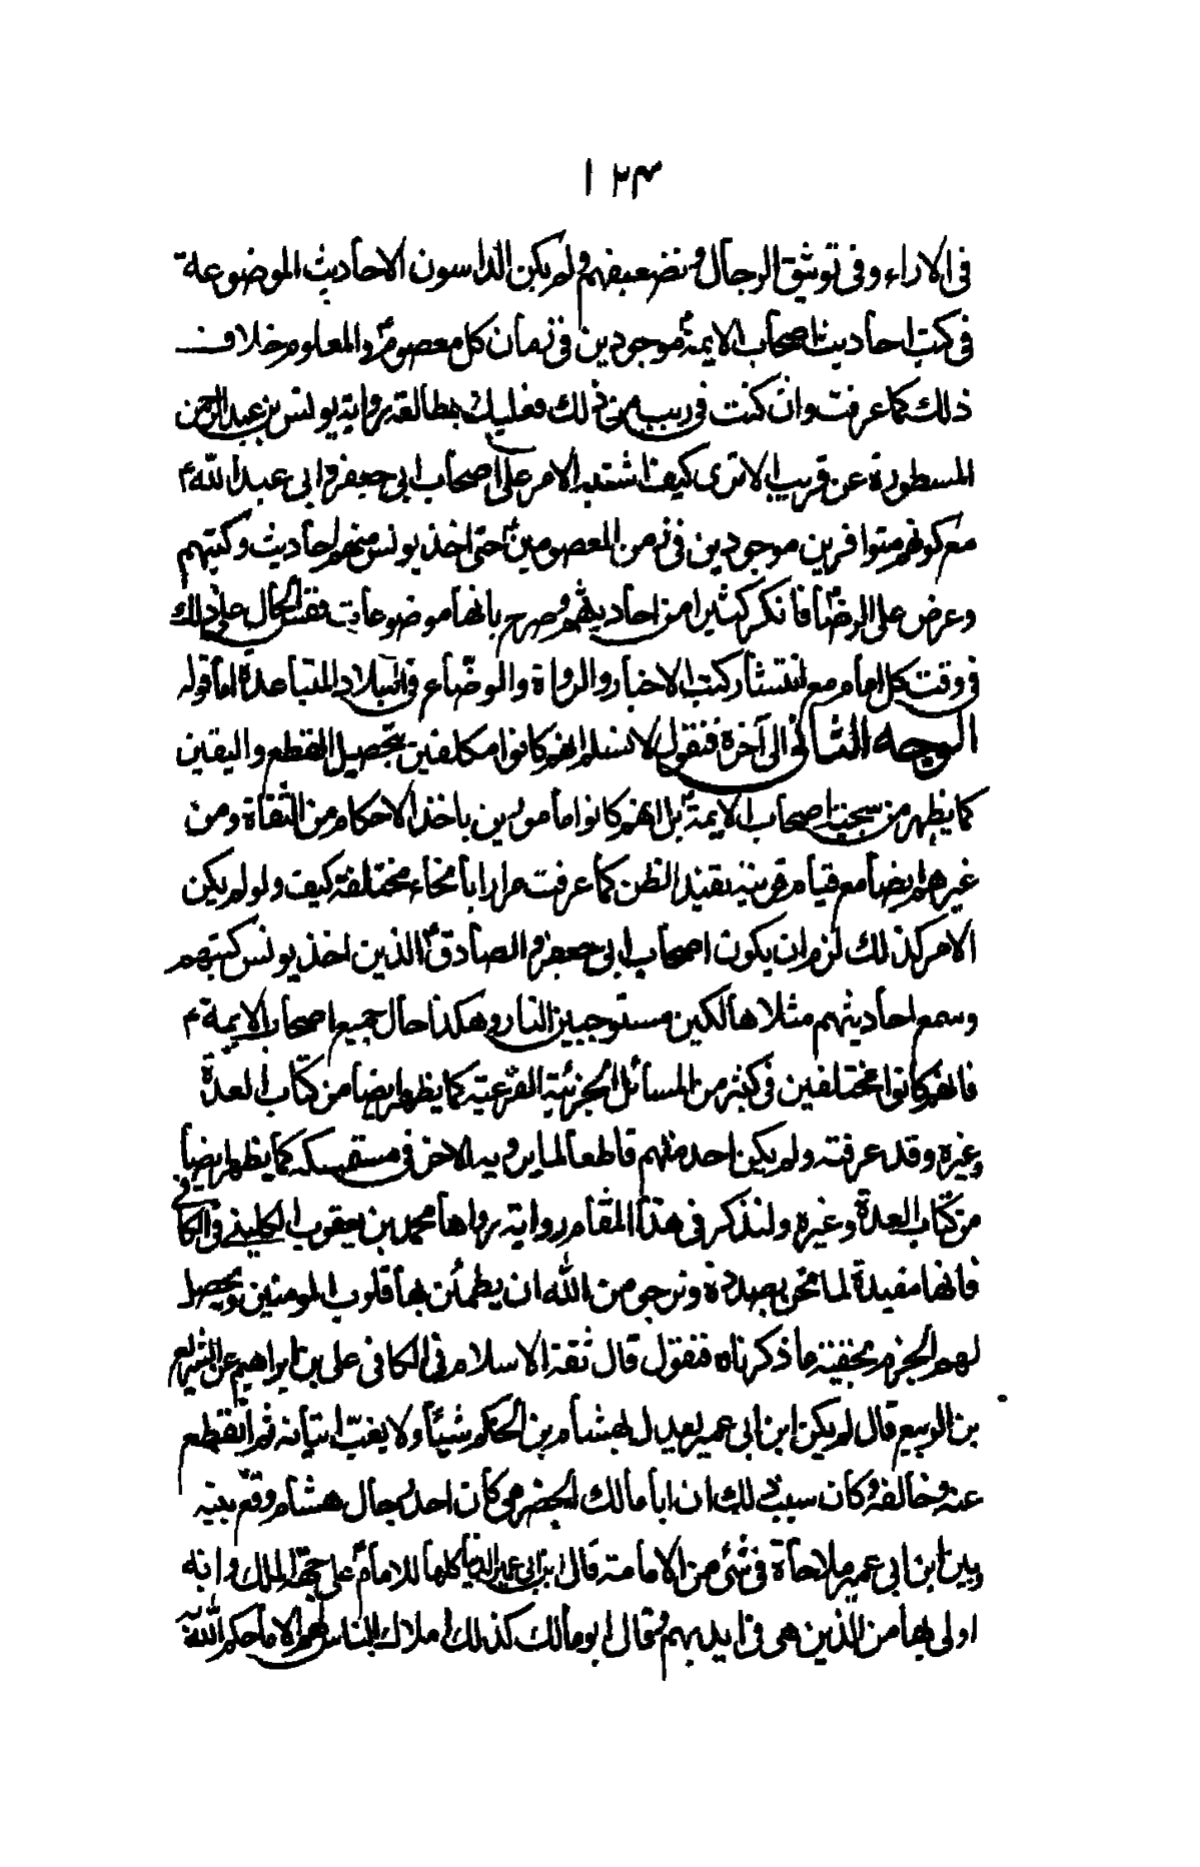 ١٢٤
في الاراء وفي توثيق الرجال وتضعيفهم ولم يكن الداسون الاحاديث الموضوعة
في كتب احاديث اصحاب الايمةؑ موجودين في زمان كل معصومؑ والمعلوم خلاف
ذلك كما عرفت وان كنت في ريب من ذلك فعليك بمطالعة رواية يونس بن عبد الرحمن
المسطورة عن قريب الا ترى كيف اشتبه الامر على اصحاب ابي جعفر وابي عبد اللهؑ
مع كونهم متوافرين موجودين في زمن المعصومينؑ حتى اخذ يونس منهم احاديث وكتبهم
وعرض على الرضاؑ فانكر كثيرا من احاديثهم وصرح بانها موضوعات فقس الحال على ذلك
في وقت كل امام مع انتشار كتب الاخبار والرواة والوضاع في البلاد المتباعدة اما قوله
الوجه الثاني الى آخره فنقول لا نسلم انهم كانوا مكلفين بتحصيل القطع واليقين
كما يظهر من سجية اصحاب الايمةؑ بل انهم كانوا مامورين باخذ الاحكام من الثقاة ومن
غيرهم ايضا مع قيام قرينة تفيد الظن كما عرفت مرارا بانحاء مختلفة كيف ولو لم يكن
الامر كذلك لزم ان يكون اصحاب ابي جعفر والصادقؑ الذين اخذ يونس كتبهم
وسمع احاديثهم مثلا هالكين مستوجبين النار وهكذا حال جميع اصحاب الايمةؑ
فانهم كانوا مختلفين في كثير من المسائل الجزئية الفرعية كما يظهر ايضا من كتاب العدة
وغيره وقد عرفته ولم يكن احد منهم قاطعا لما يرويه الاخر في مستمسكه كما يظهر ايضا
من كتاب العدة وغيره ولنذكر في هذا المقام رواية رواها محمد بن يعقوب الكليني في الكافي
فانها مفيدة لما نحن بصدده ونرجي من الله ان يطمئن بها قلوب المومنين ويحصل
لهم الجزم بحقية ما ذكرناه فنقول قال ثقة الاسلام في الكافي علي بن ابراهيم عن السري
بن الربيع قال لم يكن ابن ابي عمير يعدل بهشام بن الحكم شيئا ولا يغب اتيانه ثم انقطع
عنه وخالفه وكان سبب ذلك ان ابا مالك الحضرمي كان احد رجال هشام وقع بينه
وبين ابن ابي عمير ملاحاة في شئ من الامامة قال ابن ابي عمير الدنيا كلها للامامؑ على جهة الملك وانه
اولى بها من الذين هي في ايديهم وقال ابو مالك كذلك املاك الناس لهم الا ما حكم الله به